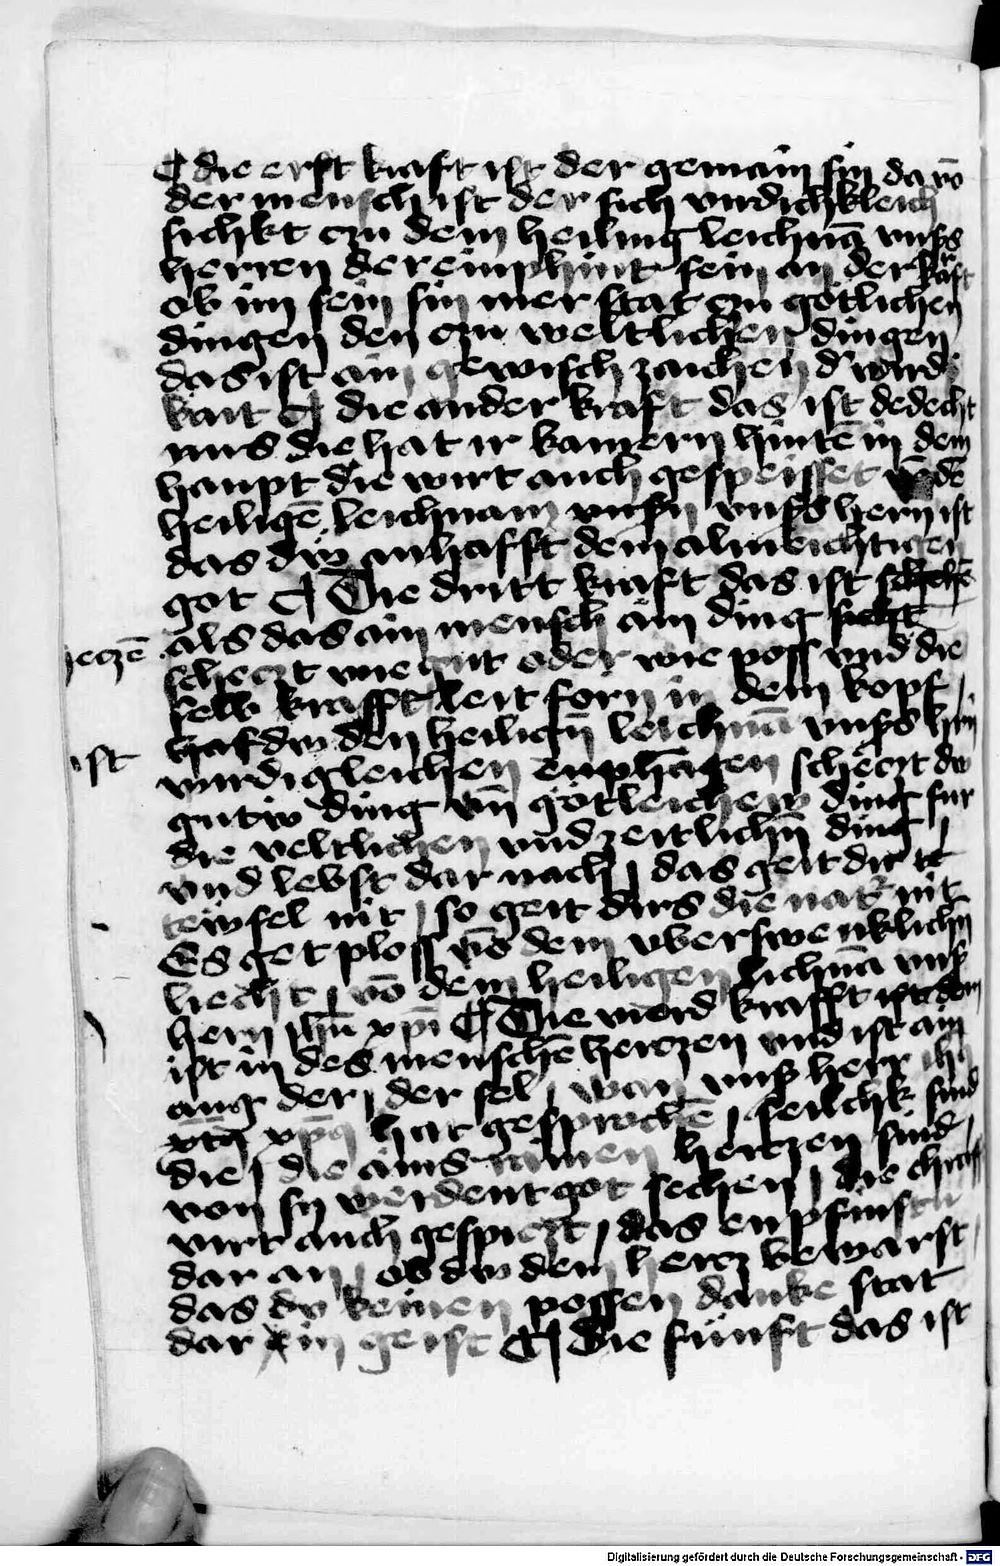 ¶ die erst kraft ist der gemain sin da vō
der mensch ist der sich wirdichkleich
sichkt czu dem heiling leichnā vnsß
herren der einphint sein an der kraft
ob im sein sin mer stat czu götlichen
dingen den czu weltlichen dingen
das ist ain gewisch zaichen d' wirdi
kait ¶ die ander kraft das ist dedecht
nus die hat ir kamern hintē in dem
haupt die wirt auch gespeisset dē
heiligē leichnam vnsß hern ist
das dw anhafft dem almechtigen
got ¶ Die dritt kraft das ist
als das ain mensch ain ding
scheczt wie gut oder wie poss vnd die
selb krafft leit forn in dem kopf
hafdw den heilign̄ leichnā vnsß hrn
wirdigleichen enphāgen scheczt dw
gutiw ding vn̄ götleichew ding fur
die veltlichen vnd zeitlichn̄ ding
vnd lebst dar nach das geit dir te
tewfel nit so geit dirs die nat' nit
Es get ploss vō dem vberswenklichn̄
liecht vō dem heiligen lichnā vnsß
hern ihū xpī ¶ Die vierd krafft ist
ist in des menschē herczen vnd ist ain
aug der der sel wan vnß herr ihs
xpūs hat gesprochē seilchk sind
die die ains rainen herczen sind
von sy werdent got sechen die chraft
wirt auch gespiezt das enpfinstu
dar an ob dw dein hercz bewarst
das dw keinen possen danke stat
dar in geist ¶ Die funft das ist
ist